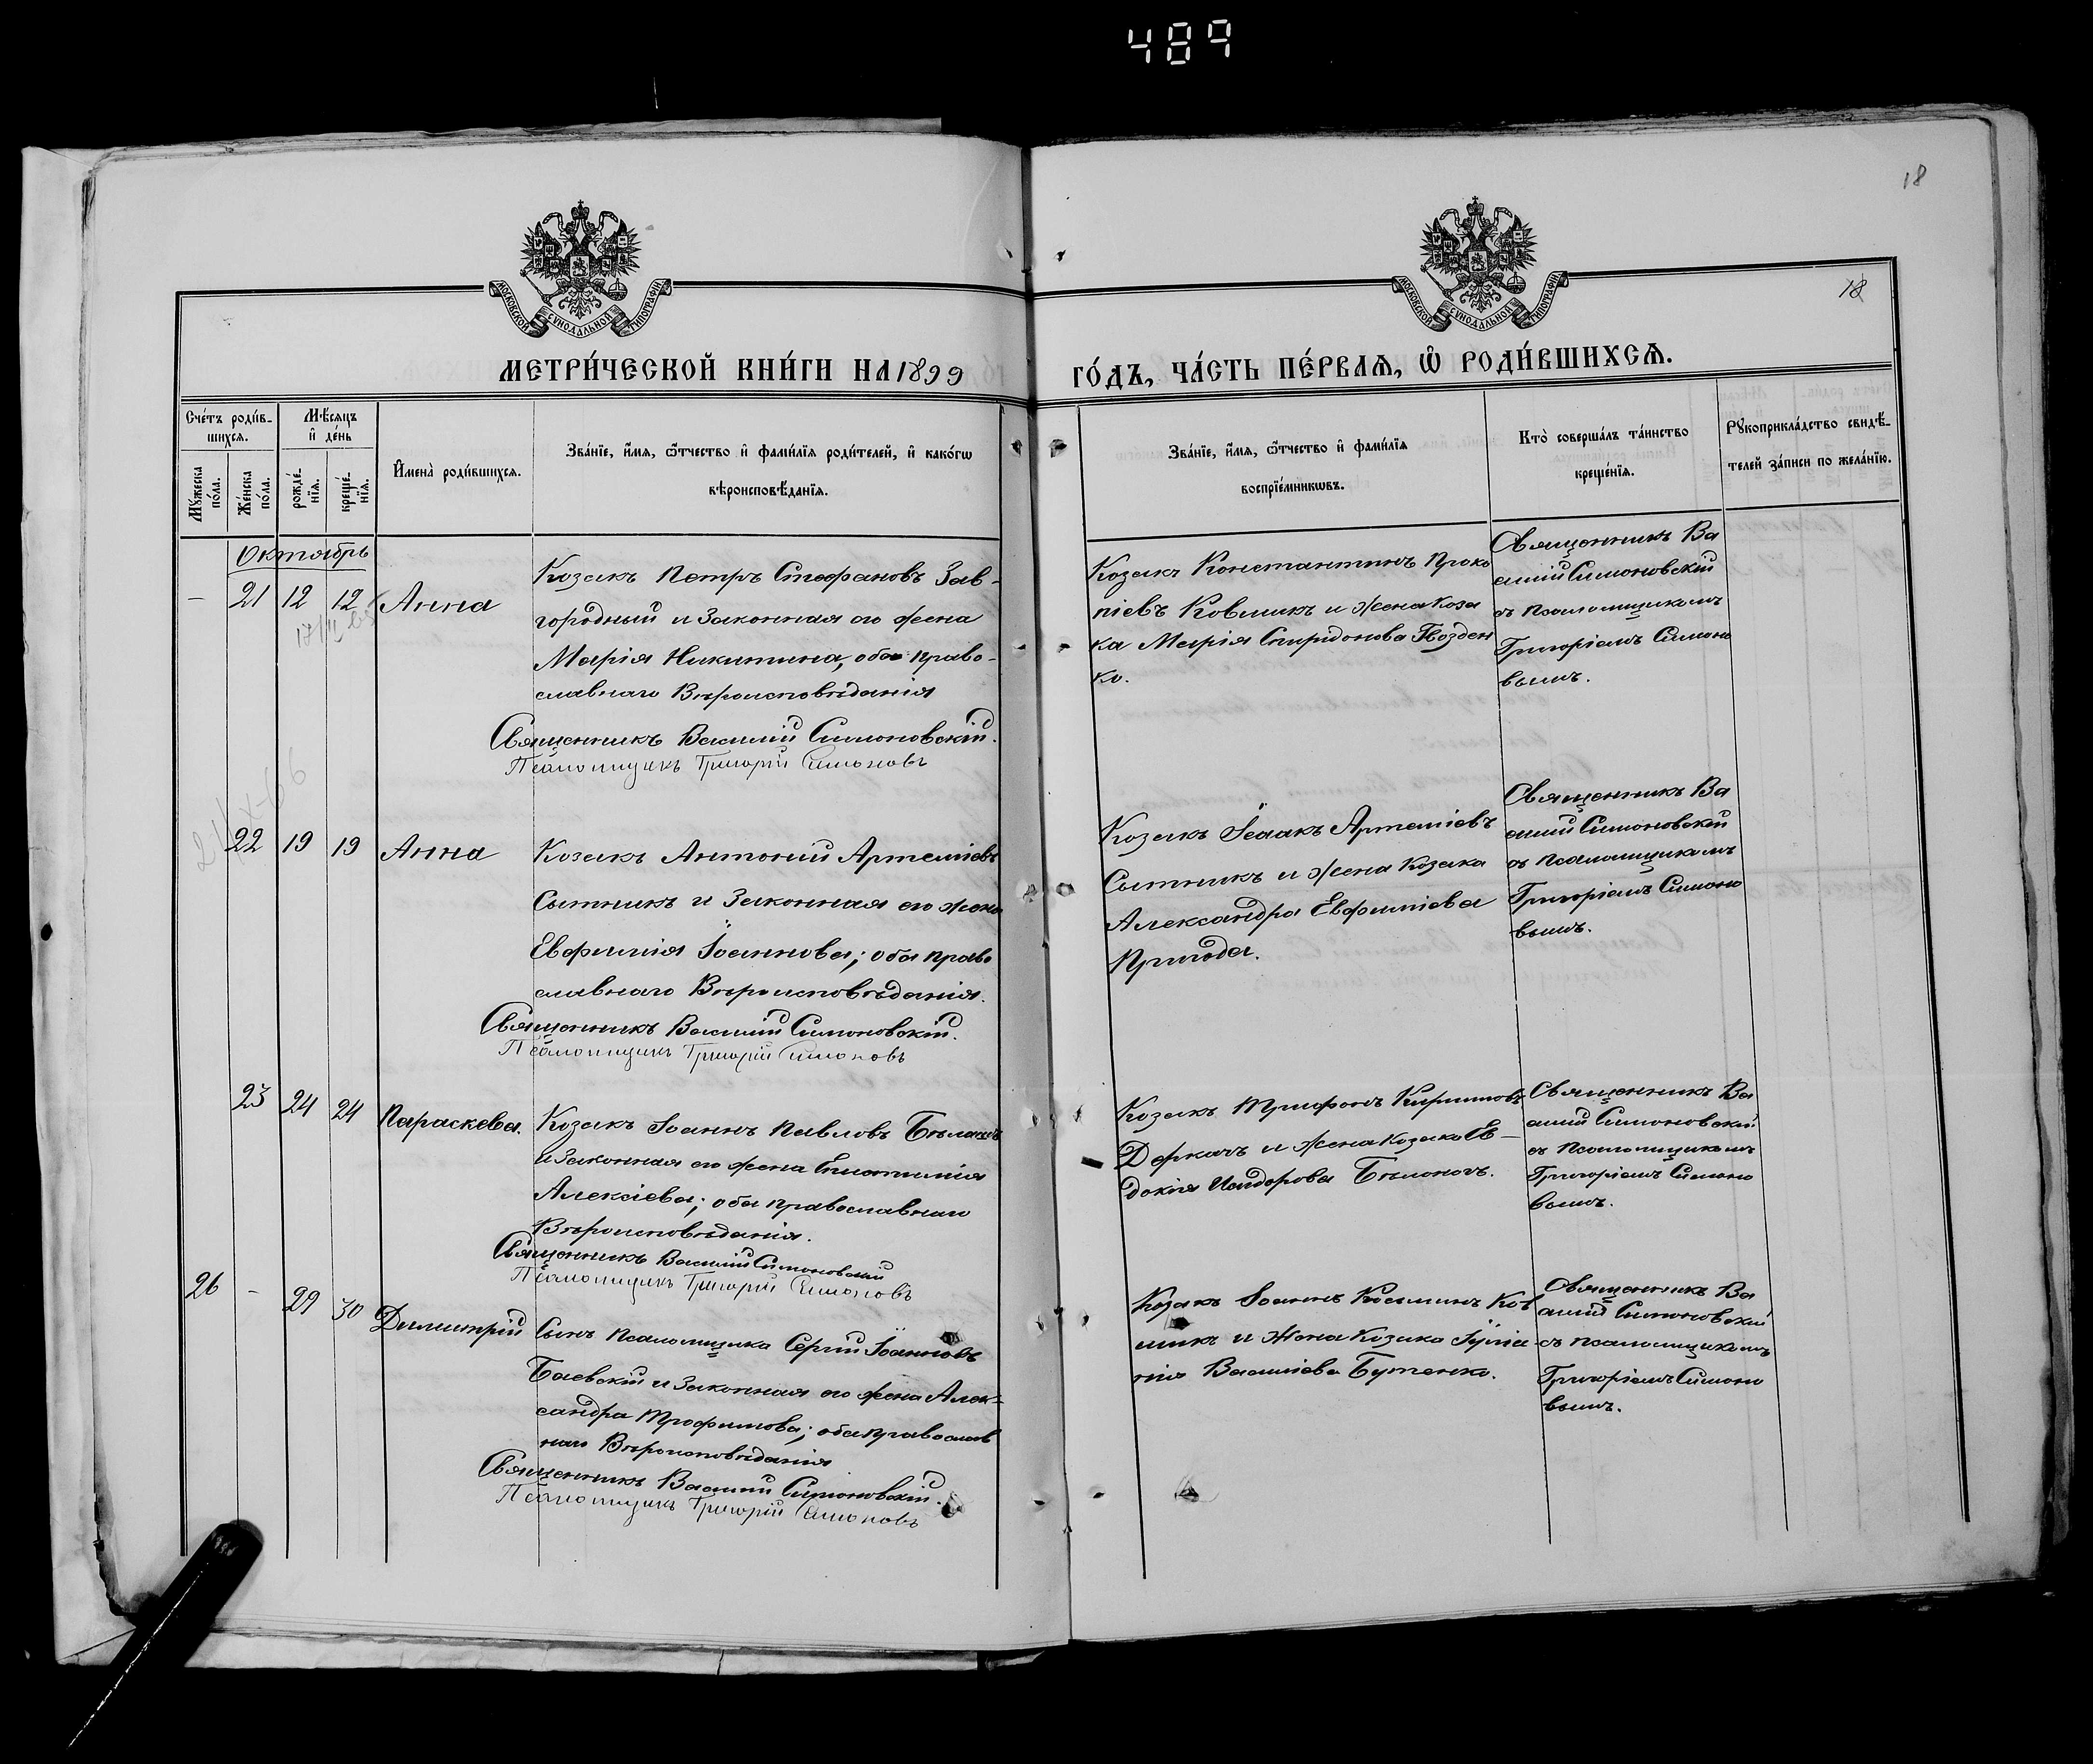 489
18
18
МОСКОВСКОЙ СУНОДАЛЬНОЙ ТИПОГРАФІИ
МОСКОВСКОЙ СУНОДАЛЬНОЙ ТИПОГРАФІИ
МЕТРИ́ЧЕСКОЙ КНИ́ГИ НА 1899
ГО́ДЪ, ЧА́СТЬ ПЕ́РВАѦ, Ѿ РОДИ́ВШИХСѦ.
Сче́тъ роди́в-
шихся.
Мꙋжеска по́ла.
Же́нска по́ла.
Мѣ́сяцъ
и҆ де́нь
рожде́-
нїя.
креще́-
нїя.
И҆мена̀ роди́вшихся.
Зва́нїе, и҆́мя, ѻ҆́тчество и҆ фами́лїя роди́телей, и҆ како́гѡ
вѣроисповѣ́данїя.
Зва́нїе, и҆́мя, ѻ҆́тчество и҆ фами́лїя
воспрїе́мникѡвъ.
Кто̀ соверша́лъ та́инство
креще́нїя.
Рꙋкоприкла́дство свидѣ́-
телей за́писи по жела́нїю.
Октябрь
– 21 12 12 Анна
Козакъ Петръ Стефановъ Зав-
городный и законная его жена
Марія Никитина, оба право-
славнаго Вѣроисповѣданія
Священникъ Василій Симоновскій.
Псаломщикъ Григорій Симоновъ
Козакъ Константинъ Проко
піевъ Ковликъ и жена Коза
ка Марія Спиридонова Гвозден
ко.
Священникъ Ва
силій Симоновскій
съ Псаломщикомъ
Григоріемъ Симоно
вымъ.
22 19 19 Анна
Козакъ Антоній Артеміевъ
Сытникъ и законная его жена
Евфимія Іоаннова; оба право
славнаго Вѣроисповѣданія.
Священникъ Василій Симоновскій.
Псаломщикъ Григорій Симоновъ
Козакъ Исаакъ Артеміевъ
Сытникъ и жена Козака
Александра Евфиміева
Пригода.
Священникъ Ва
силій Симоновскій
съ Псаломщикомъ
Григоріемъ Симоно
вымъ.
23 24 24 Параскева.
Козакъ Іоаннъ Павловъ
и законная его жена
Алексіева; оба православнаго
Вѣроисповѣданія.
Священникъ Василій Симоновскій
Псаломщикъ Григорій Симоновъ
Козакъ Трифонъ Кирилловъ
Деркачъ и жена козака Ев-
докія Исидорова
Священникъ Ва
силій Симоновскій
съ Псаломщикомъ
Григоріемъ Симоно
вымъ.
26 – 29 30 Димитрій
Сынъ Псаломщика Сергій Іоанновъ
Баевскій и законная его жена Алек-
сандра Трофимова; оба православ
наго Вѣроисповѣданія
Священникъ Василій Симоновскій.
Псаломщикъ Григорій Симоновъ
Козакъ Іоаннъ Косминъ Ков
ликъ и жена Козака
Василіева Бутенко.
Священникъ Ва
силій Симоновскій
съ псаломщикомъ
Григоріемъ Симоно
вымъ.